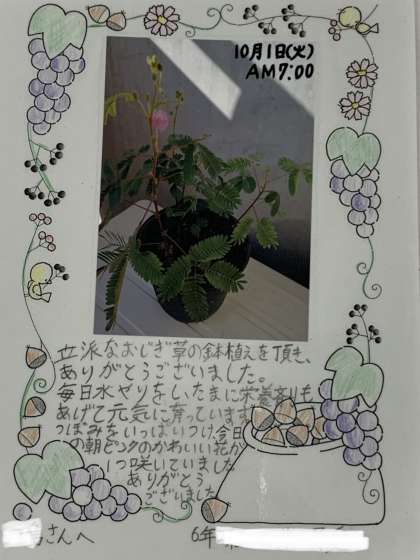 10月1日(火)
AM7:00
立派なおじぎ草の鉢植えを頂き、
ありがとうございました。
毎日水やりをし、たまに栄養剤も
あげて元気に育っています
つぼみをいっぱいつけ今日
の朝ピンクのかわいい花が
1つ咲いていました
ありがとう
ございました
さんへ
6年